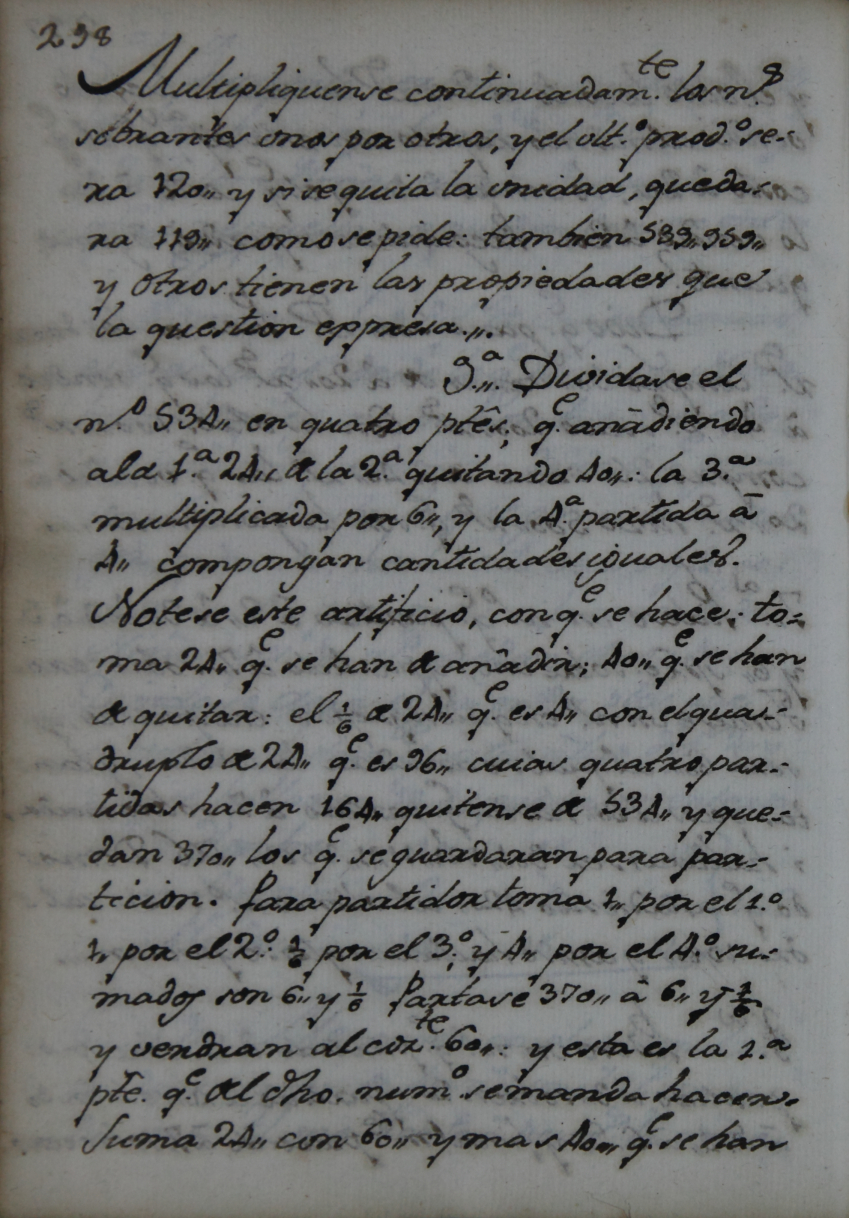 298
Multipliquense continuadam.te los n.s
sobrantes unos por otros, y el ult.o prod.o se-
ra 120,, y si se quita la unidad, queda-
ra 119,, como se pide: tambien 539,, 959,,
y otros tienen las propiedades que
la question eppresa.,,.
9.a,,. Dividase el
n.o 534,, en quatro ptes; q.e añadiendo
ala 1.a 24,, de la 2.a quitando 40,,: la 3.a
multiplicada por 6,,, y la 4.a partida â
4,, compongan cantidades iguales.
Notese este artificio, con q.e se hace: to-
ma 24,, q.e se han de añadir; 40,, q.e se han
de quitar: el 1/6 de 24,, q.e es 4,, con el qua-
druplo de 24,, q.e es 96,, cuias quatro par-
tidas hacen 164,, quitense de 534,, y que-
dan 370,, los q.e se guardaran para par-
ticion. Para partidor toma 1,, por el 1.o
1,, por el 2.o: 1/6 por el 3.o; y 4,, por el 4.o su-
mados son 6,, y 1/6 Partase 370,, â 6,, y 1/6
y vendran al coz.te 60,,: y esta es la 1.a
pte. q.e del dho. num.o se manda hacer.
Suma 24,, con 60,, y mas 40,, q.e se han